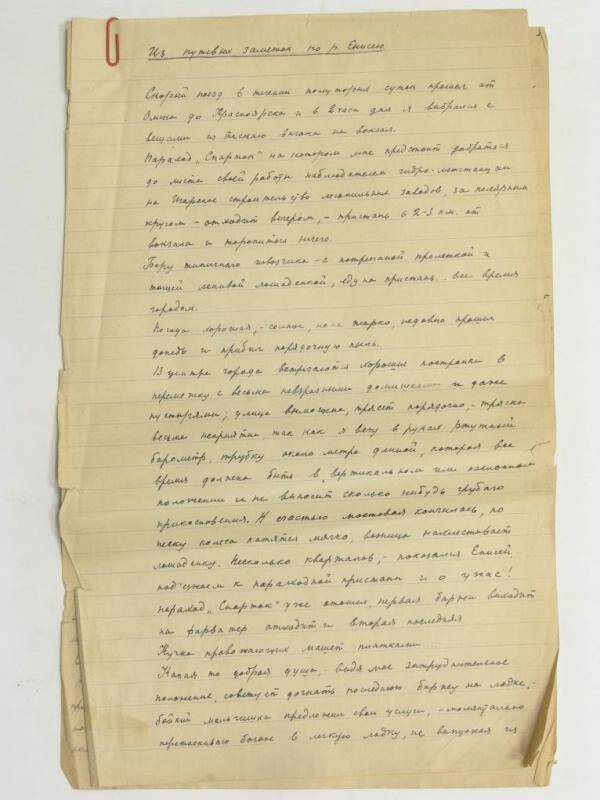 Из путевых заметок по р. Енисею
Скорый поезд в течении полуторых суток прошел от
Омска до Красноярска и в 2 часа дня я выбрался с
вещами из тесного вагона на вокзал.
Пароход „Спартак" на котором мне предстоит добраться
до места своей работы наблюдателем гидро-метстанции
на Игарское строительство лесопильных заводов, за полярным
кругом – отходит вечером, – пристань в 2-3 км. от
вокзала и торопиться нечего.
Беру типичного извозчика – с потрепанной пролеткой и
тощей ленивой лошаденкой, еду на пристань. все время
городом.
Погода хорошая, – солнце, жарко, недавно прошел
дождь и прибил порядочную пыль.
В центре города встречаются хорошие постройки в
перемежку с весьма невзрачными домишками и даже
пустырями; улица вымощена, трясет порядочно, – тряска
весьма неприятна, так как я везу в руках ртутный
барометр, трубку около метра длиной, которая все
время должна быть в вертикальном или наклонном
положении и не выносит сколько нибудь грубого
прикосновения. К счастью мостовая кончилась, по
песку колеса катятся мягко, возница нахлестывает
лошаденку. Несколько кварталов, – показался Енисей
под'езжаем к пароходной пристани и о ужас!
пароход „Спартак" уже отошел, первая баржа выходит
на фарватер отходит и вторая последняя
Кучка провожающих машет платками...
Какая то добрая душа, – видя мое затруднительное
положение, советует догнать последнюю баржу на лодке, –
бойкий мальчишка предложил свои услуги, – моментально
перетаскиваю богаж в легкую лодку, не выпуская из